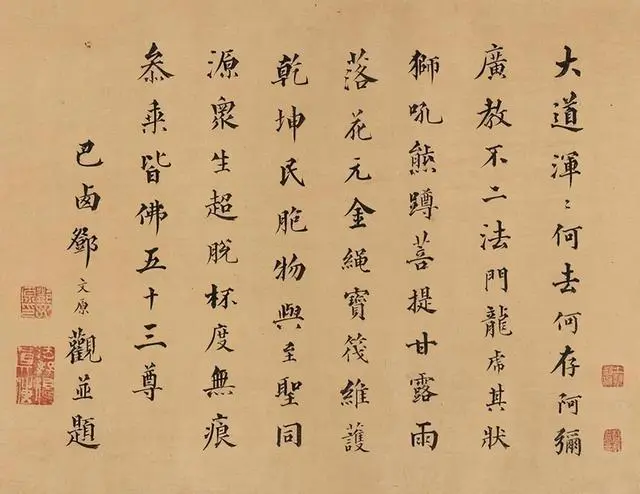 大道渾〻何去何存阿彌
廣教不二法門龍虎其狀
獅吼熊蹲菩提甘露雨
落花元金繩寶筏維護
乾坤民胞物與至聖同
源衆生超脫杯度無痕
叅乘皆佛五十三尊
巴西鄧文原觀並題